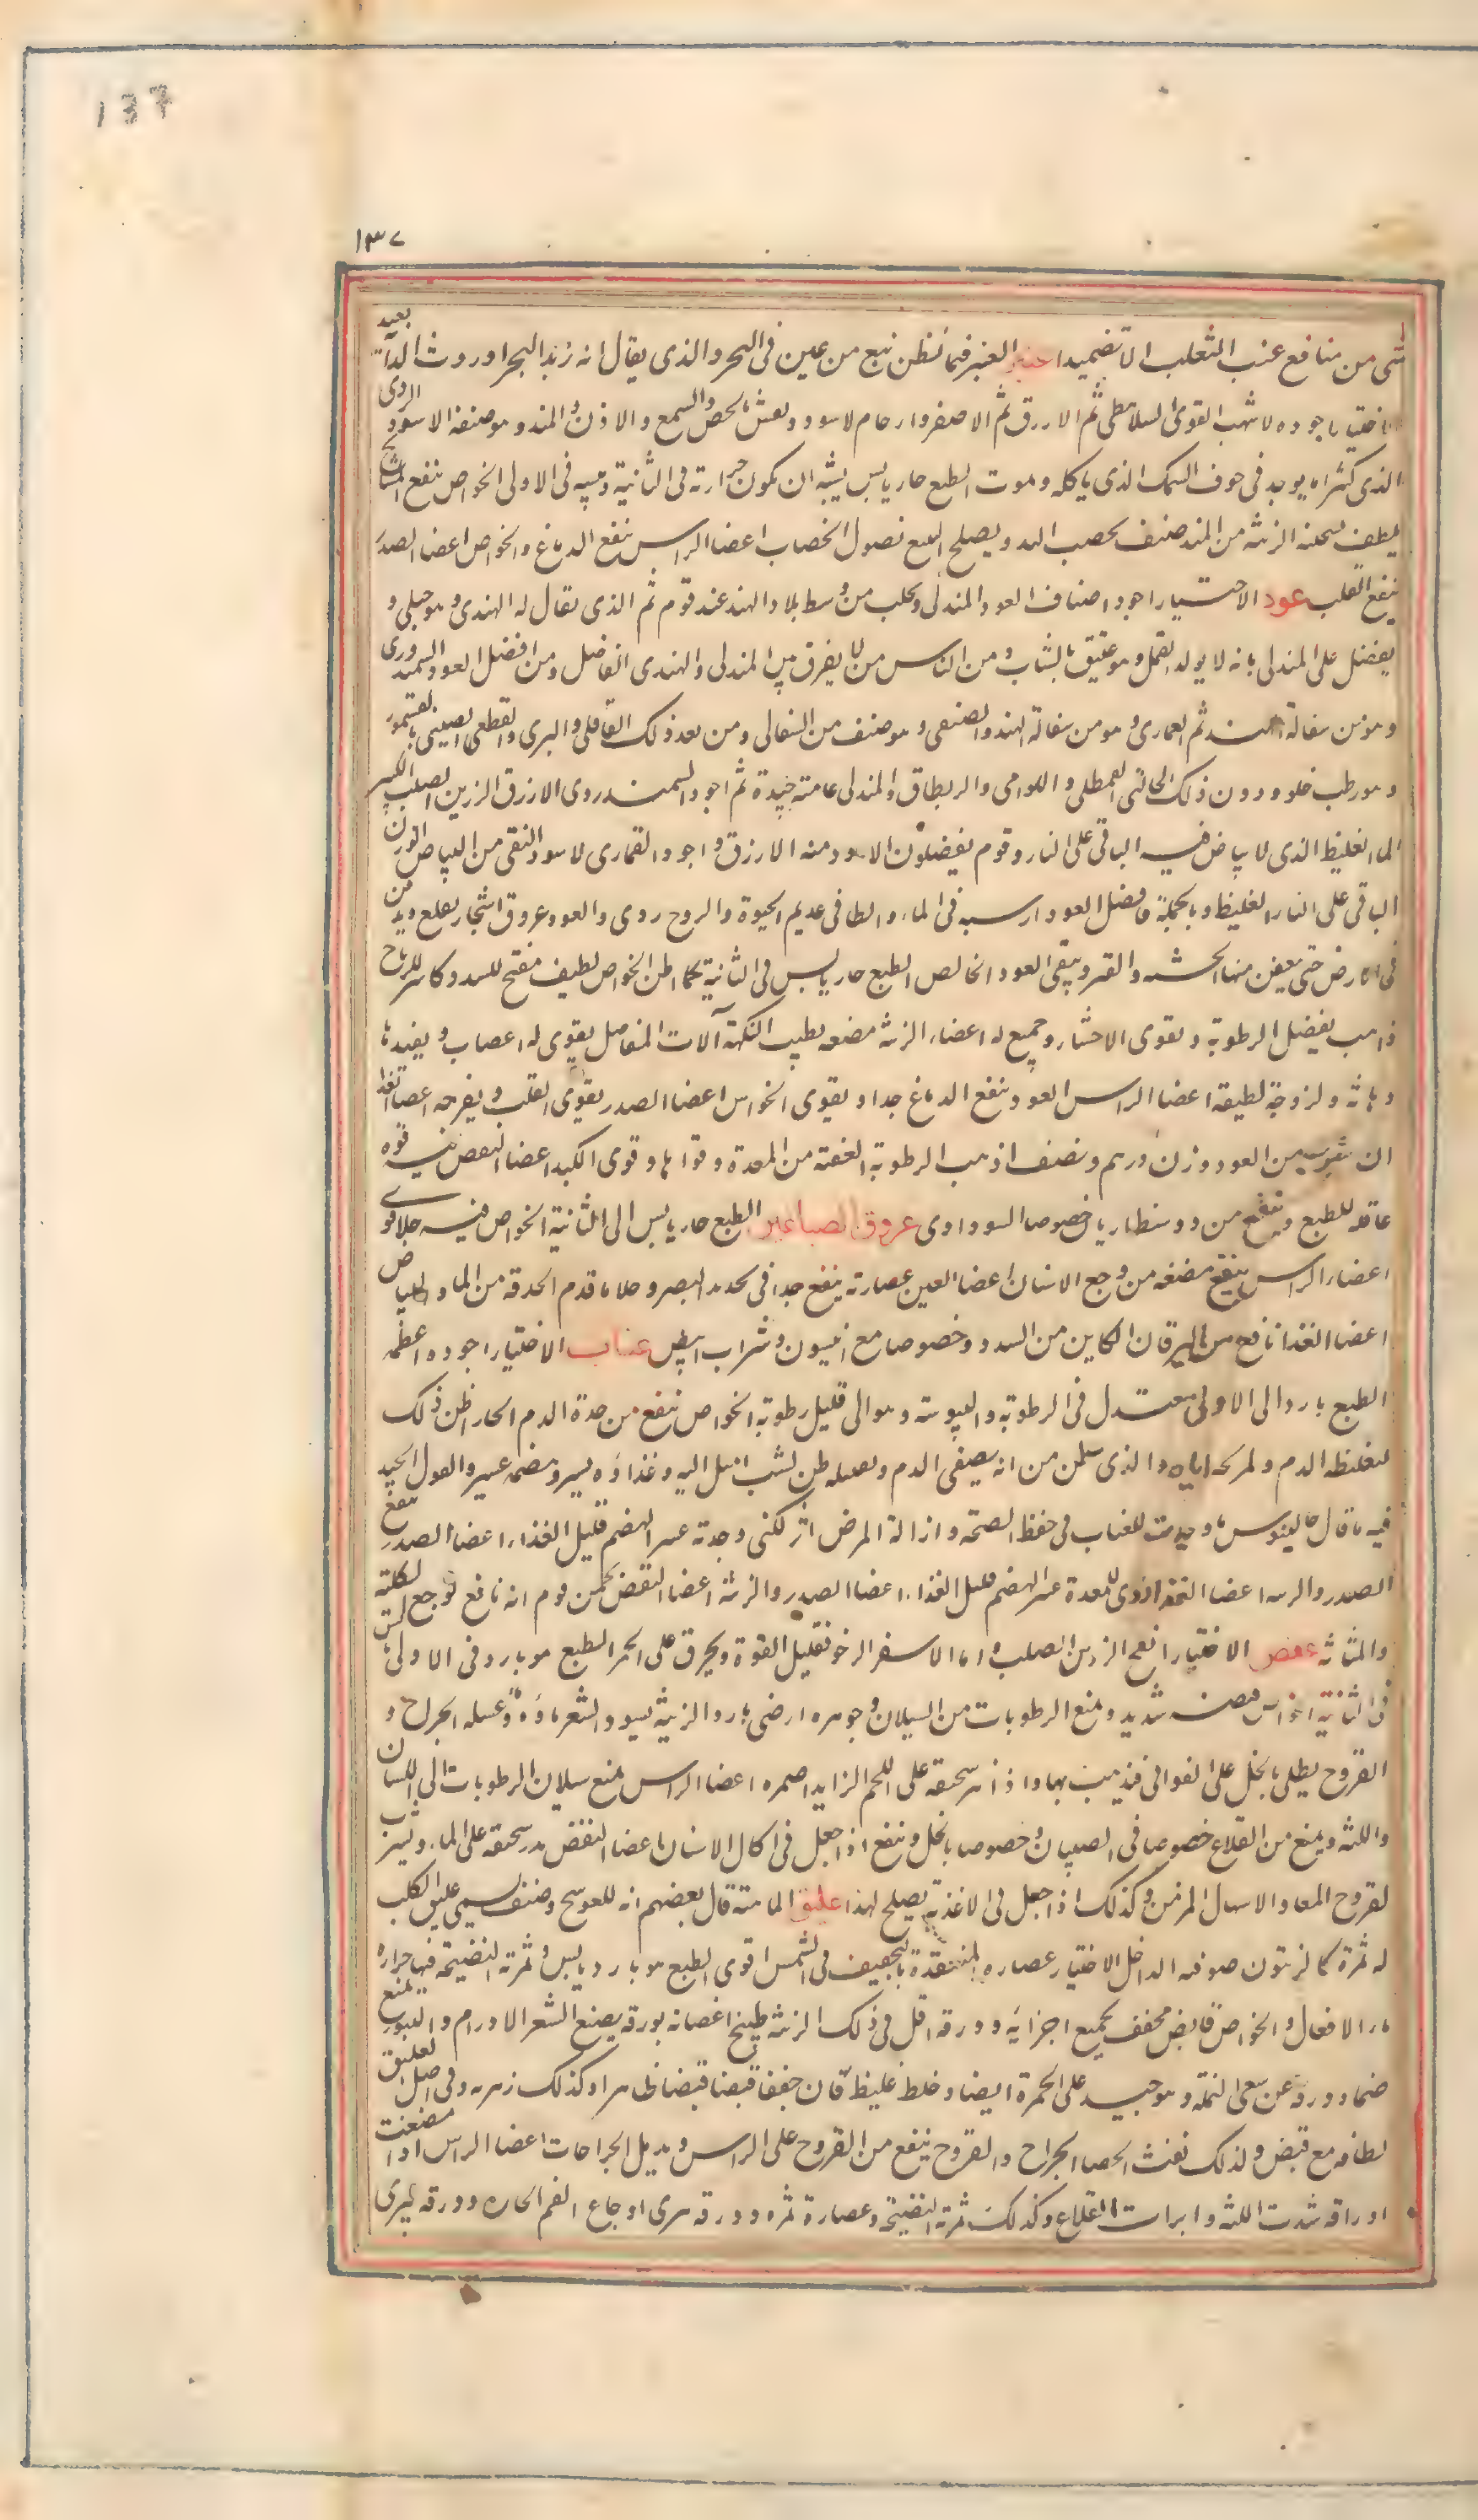 137
١٣٧
شى من منافع عنب الثعلب الا تضميدا عنبر العنبر فيما نظن نبع من عين فى البحر والذى يقال انه زبد البحر او روث الدابة بعيد
الاختيار اجوده الاشهب القوى السلاهطى ثم الازرق ثم الاصفر وارحام لاسود ويغش بالجص والشمع والاذن والمند وهو صنفه الاسود الردى
الذى كثيرا ما يوجد فى جوف السمك الذى ياكله ويموت الطبع حار يابس يشبه ان يكون حرارته فى الثانية ويبسه فى الاولى الخواص ينفع المشايخ
بلطف تسخنه الزينة من المند صنف يخصب اليد ويصلح ليتبع نصول الخضاب اعضا الراس ينفع الدماغ والحواس اعضا الصدر
ينفع القلب عود الاختيار اجود اصناف العود المندلى ويجلب من وسط بلاد الهند عند قوم ثم الذى يقال له الهندى وهو جبلى و
يفضل على المندلى بانه لا يولد القمل وهو عبق بالثياب ومن الناس من لا يفرق بين المندلى والهندى الفاضل ومن افضل العود السمندورى
وهو من سفالة الهند ثم القمارى وهو من سفالة الهند والصنفى وهو صنف من السفالى ومن بعد ذلك القاقلى والبرى والقطعى والصينى بالقسمور
وهو رطب حلو ودون ذلك الجلائى والمطلى واللوامى والربطاق والمندلى عامته جيدة ثم اجود السمندروى الازرق الرزين الصلب الكثير
الماء الغليظ الذى لا بياض فيه الباقى على النار وقوم يفضلون الاسود منه الازرق واجود القمارى لاسود النقى من البياض الرزين
الباقى على النار الغليظ وبالجملة فافضل العود ارسبه فى الماء والطافى عديم الحيوة والروح ردى والعود عروق اشجار تقلع ويدفن
فى الارض حتى يعفن منها الخشبه والقشر ويبقى العود الخالص الطبع حار يابس فى الثانية كما اظن الخواص لطيف مفتح للسدد كاسر للرياح
ذاهب بفضل الرطوبة ويقوى الاحشاء وجميع له اعضاء الزينة مضغه يطيب النكهة آلات المفاصل يقوى له اعصاب ويفيدها
دهانة ولزوجة لطيفة اعضا الراس العود ينفع الدماغ جدا ويقوى الحواس اعضا الصدر يقوى القلب ويفرحه اعضا الغذا
ان شرب من العود وزن درهم ونصف اذهب الرطوبة العفنة من المعدة وقواها وقوى الكبد اعضا النفض فيه قوه
عاقلة للطبع وينفع من دوسنطاريا خصوصا السوداوى عروق الصباغين الطبع حار يابس الى الثانية الخواص فيه جلا قوى
اعضاء الراس ينفع مضغه من وجع الاسنان اعضا العين عصارته ينفع جدا فى تحديد البصر وجلا ما قدم الحدقة من الماء والبياض
اعضا الغذا نافع من اليرقان الكاين من السدد وخصوصا مع انيسون وشراب ابيض عناب الاختيار اجوده اعظمه
الطبع بارد الى الاولى معتدل فى الرطوبة واليبوسة وهو الى قليل رطوبة الخواص ينفع من حدة الدم الحار اظن ذلك
لتغليظه الدم ولتركيه اياه والذى يظن من انه يصفى الدم ويغسله ظن لست اميل اليه وغذاؤه يسير وهضمه عسير والقول الجيد
فيه ما قال جالينوس ما وجدت للعناب فى حفظ الصحة وازالة المرض اثر لكنى وجدته عسر الهضم قليل الغذاء اعضا الصدر ينفع
الصدر والريه اعضا الغذا ردى للمعدة عسر الهضم قليل الغذاء اعضا الصدر والزينة اعضا النفض يخمن قوم انه نافع لوجع الكلية
والمثانة عفص الاختيار افجح الرزين الصلب واما الاصفر الرخو فقليل القوة ويحرق على الجمر الطبع هو بارد فى الاولى يابس
فى الثانية الخواص قبضه شديد ويمنع الرطوبات من السيلان وجوهره ارضى بارد الزينة يسود الشعر ماؤه وغسله الجراح و
القروح يطلى بالخل على القوابى فيذهب بها واذا نثر سحيقه على اللحم الزايد اضمره اعضا الراس يمنع سيلان الرطوبات الى اللسان
واللثة وينفع من القلاع خصوصا فى الصبيان وخصوصا بالخل وينفع اذا جعل فى اكال الاسنان اعضا النفض يذر سحيقه على الماء ويشرب
لقروح المعا والاسهال المزمن وكذلك اذا جعل فى الاغذية يصلح لهذا عليق الماهية قال بعضهم انه للعوسج وصنف يسمى عليق الكلب
له ثمرة كالزيتون صوفه الداخل الاختيار عصارته المنعقدة بالتجفيف فى الشمس اقوى الطبع هو بارد يابس وثمرته النضيجة فيها حراره
ما الافعال والخواص قابض مجفف بجميع اجزايه وورقه اقل فى ذلك الزينة طبيخ اغصانه بورقه يصبغ الشعر الاورام والبثور يمنع
ضماد ورقه عن سعى النملة وهو جيد على الحمرة ايضا وخلط غليظ فان جفف قبضا قبضا ظاهرا وكذلك زهره وفى اصل العليق
لطافه مع قبض ولذلك تفتت الحصا الجراح والقروح ينفع من القروح على الراس ويدمل الجراحات اعضا الراس اذا مضغت
اوراقه شدت اللثه وابرات القلاع وكذلك ثمرته النضيجة وعصارة ثمره وورقه تبرى اوجاع الفم الحاره وورقه تبرى